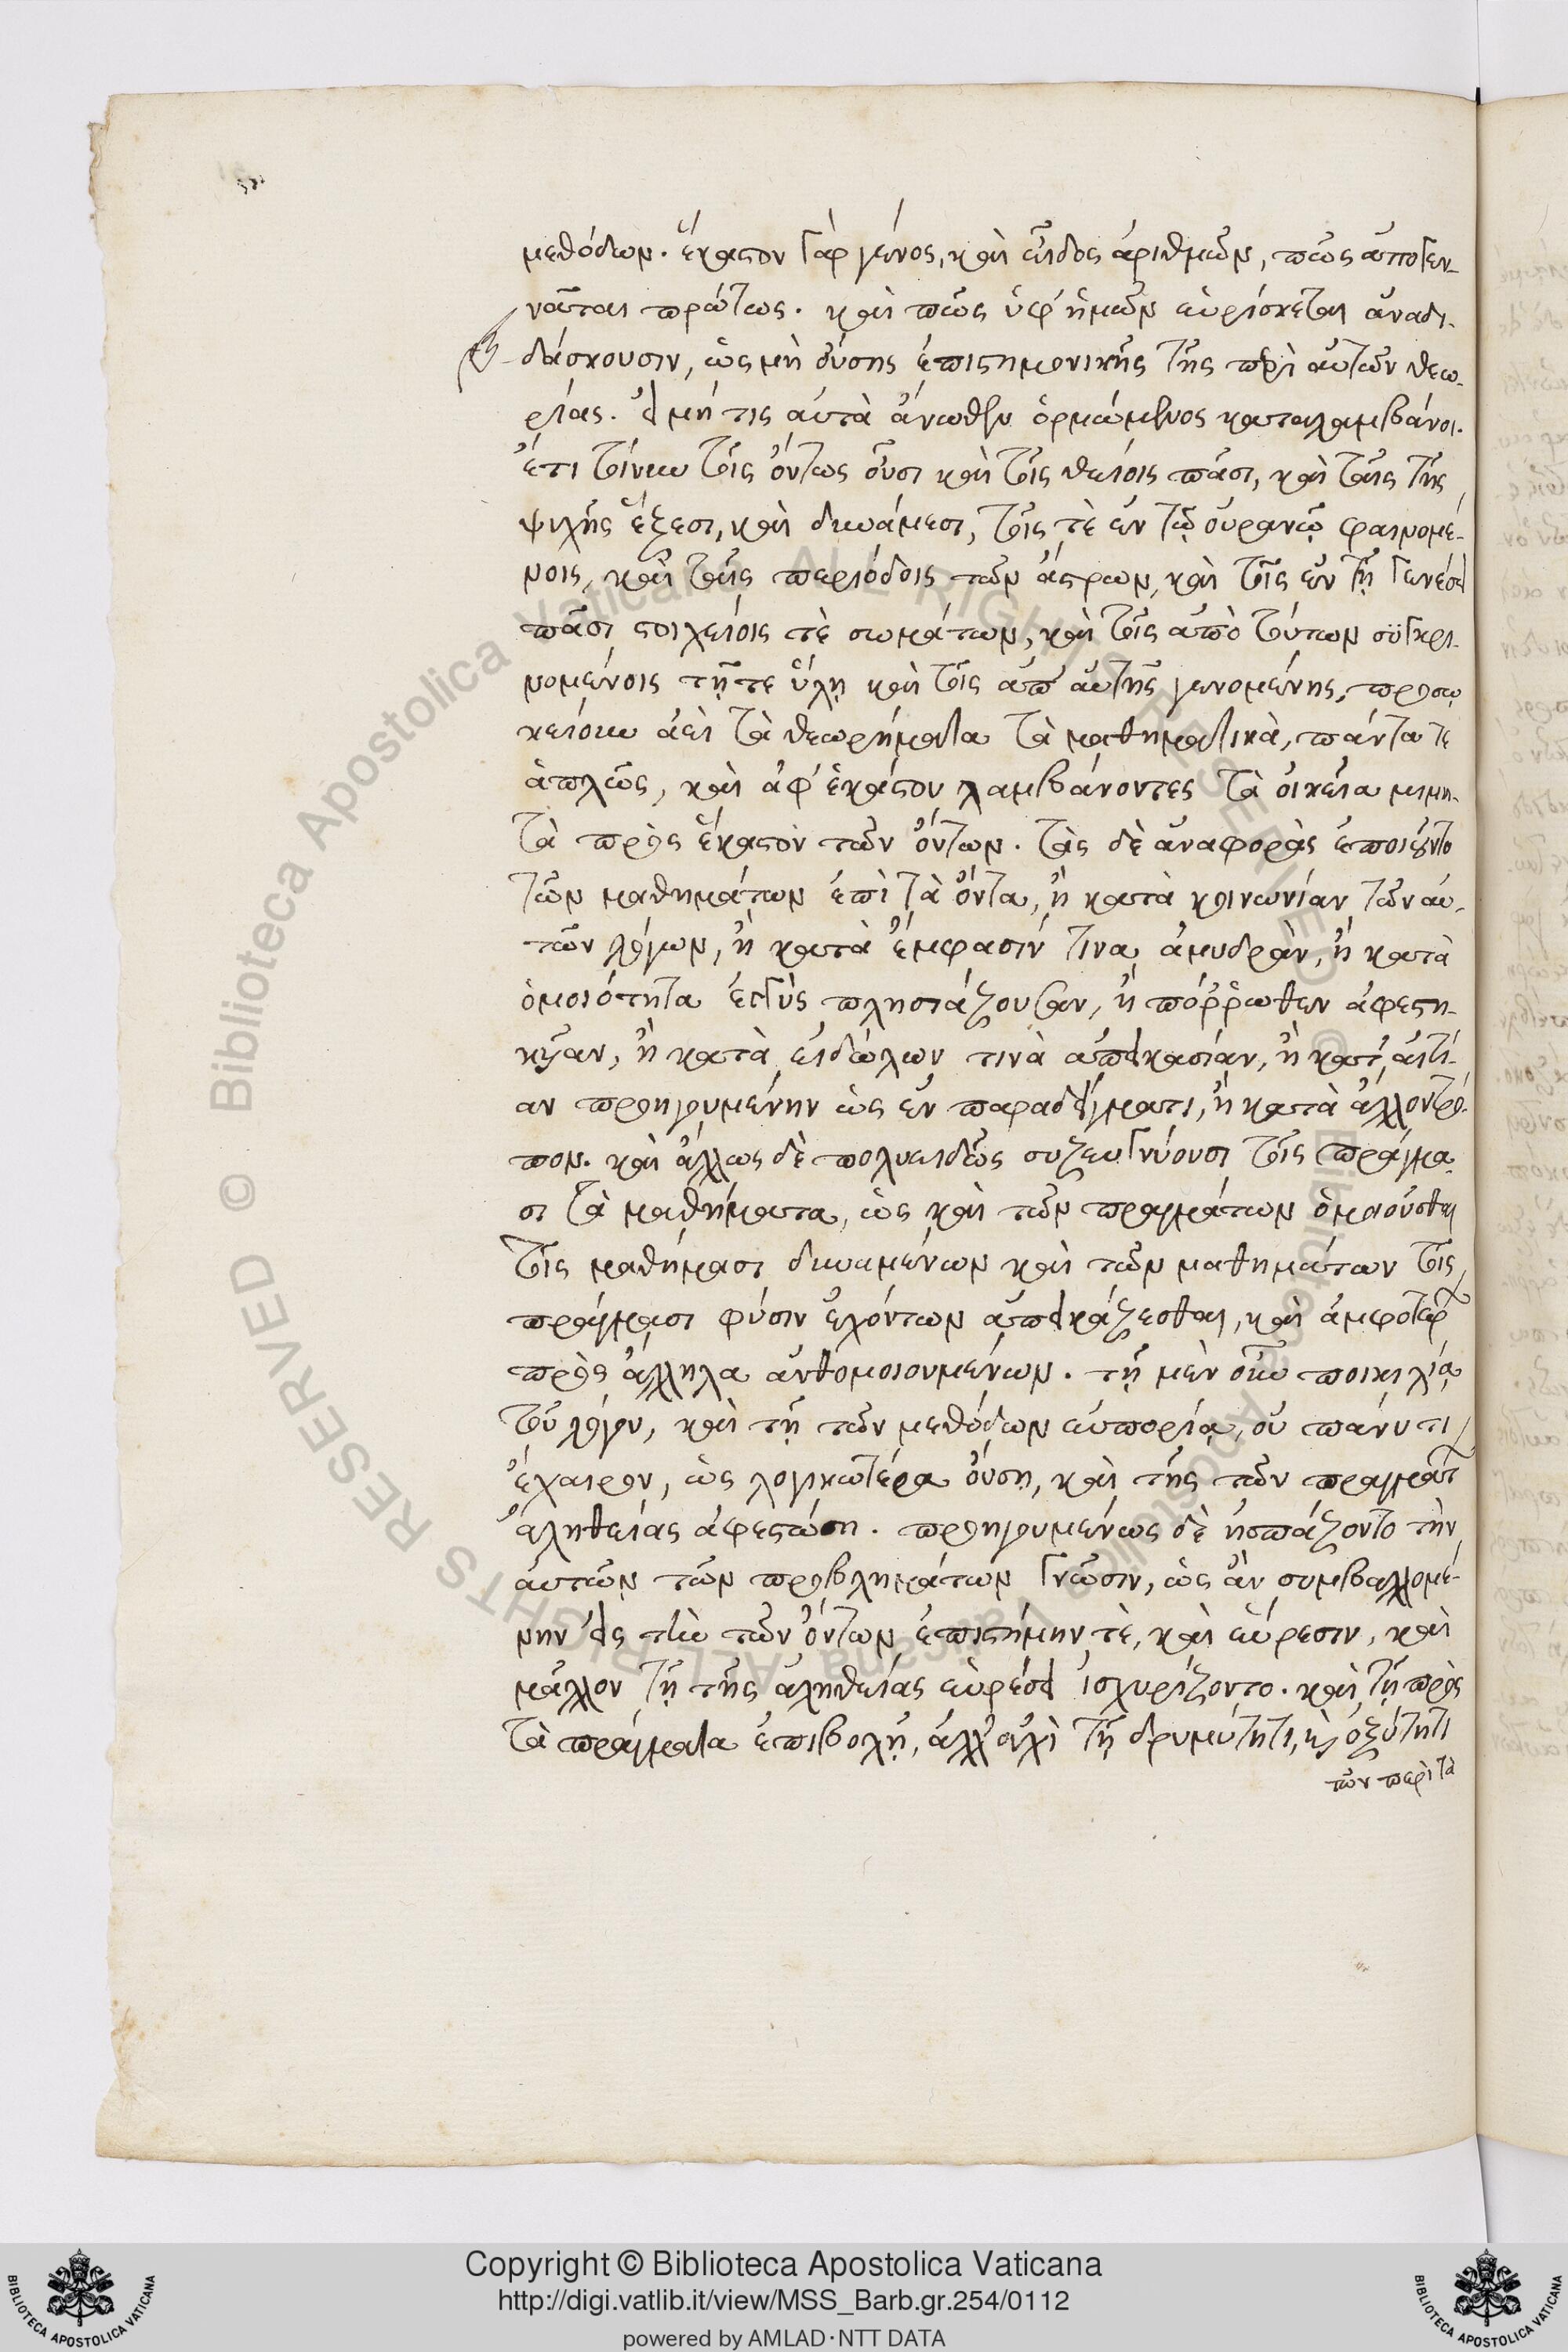 μεθόδων. ἕκαστον γὰρ γένος, καὶ εἶδος ἀριθμῶν, πῶς ἀπογεν-
νᾶται πρώτως. καὶ πῶς ὑφ' ἡμῶν εὑρίσκεται ἀναδι-
δάσκουσιν, ὡς μὴ οὔσης ἐπιστημονικῆς τῆς περὶ αὐτῶν θεω-
ρίας. εἰ μή τις αὐτὰ ἄνωθεν ὁρμώμενος καταλαμβάνοι.
ἔτι τοίνυν τοῖς ὄντως οὖσι καὶ τοῖς θείοις πᾶσι, καὶ ταῖς τῆς
ψυχῆς ἕξεσι, καὶ δυνάμεσι, τοῖς τὲ ἐν τῷ οὐρανῷ φαινομέ-
νοις, καὶ ταῖς περιόδοις τῶν ἄστρων, καὶ τοῖς ἐν τῇ γενέσει
πᾶσι στοιχείοις τὲ σωμάτων, καὶ τοῖς ἀπὸ τούτων συγκρι-
νομένοις τῇ τε ὕλῃ καὶ τοῖς ἀπ' αὐτῆς γενομένης, προσῳ
κείουν ἀεὶ τὰ θεωρήματα τὰ μαθηματικὰ, πάντα τε
ἁπλῶς, καὶ ἀφ' ἑκάστου λαμβάνοντες τὰ οἰκεῖα μιμη-
τὰ πρὸς ἕκαστον τῶν ὄντων. τὰς δὲ ἀναφορὰς ἐποιοῦντο
τῶν μαθημάτων ἐπὶ τὰ ὄντα, ἢ κατὰ κοινωνίαν τῶν αὐ-
τῶν λόγων, ἢ κατὰ ἔμφασίν τινα ἀμυδρὰν, ἢ κατὰ
ὁμοιότητα ἐγγὺς πλησιάζουσαν, ἢ πόῤῥωθεν ἀφεστη-
κυῖαν, ἢ κατὰ εἰδώλων τινὰ ἀπεικασίαν, ἢ κατ' αἰτί-
αν προηγουμένην ὡς ἐν παραδείγματι, ἢ κατὰ ἄλλον τρό-
πον. καὶ ἄλλως δὲ πολυειδῶς συζευγνύουσι τοῖς πράγμα-
σι τὰ μαθήματα, ὡς καὶ τῶν πραγμάτων ὁμοιοῦσθαι
τοῖς μαθήμασι δυναμένων καὶ τῶν μαθημάτων τοῖς
πράγμασι φύσιν ἐχόντων ἀπεικάζεσθαι, καὶ ἀμφοτέρ
πρὸς ἄλληλα ἀνθομοιουμένων. τῇ μὲν οὖν ποικιλίᾳ
τοῦ λόγου, καὶ τῇ τῶν μεθόδων εὐπορίᾳ, οὐ πάνυ τι
ἔχαιρον, ὡς λογικωτέρα οὔσῃ, καὶ τῆς τῶν πραγμάτ
ἀληθείας ἀφεστώσῃ. προηγουμένως δὲ ἠσπάζοντο τὴν
αὐτῶν τῶν προβλημάτων γνῶσιν, ὡς ἂν συμβαλλομέ-
νην εἰς τὴν τῶν ὄντων ἐπιστήμην τὲ, καὶ εὕρεσιν, καὶ
μᾶλλον τῇ τῆς ἀληθείας εὑρέσει ἰσχυρίζοντο. καὶ τῇ πρὸς
τὰ πράγματα ἐπιβολῇ, ἀλλ' οὐχὶ τῇ δριμύτητι, κὶ ὀξύτητι
τῶν περὶ τὰ